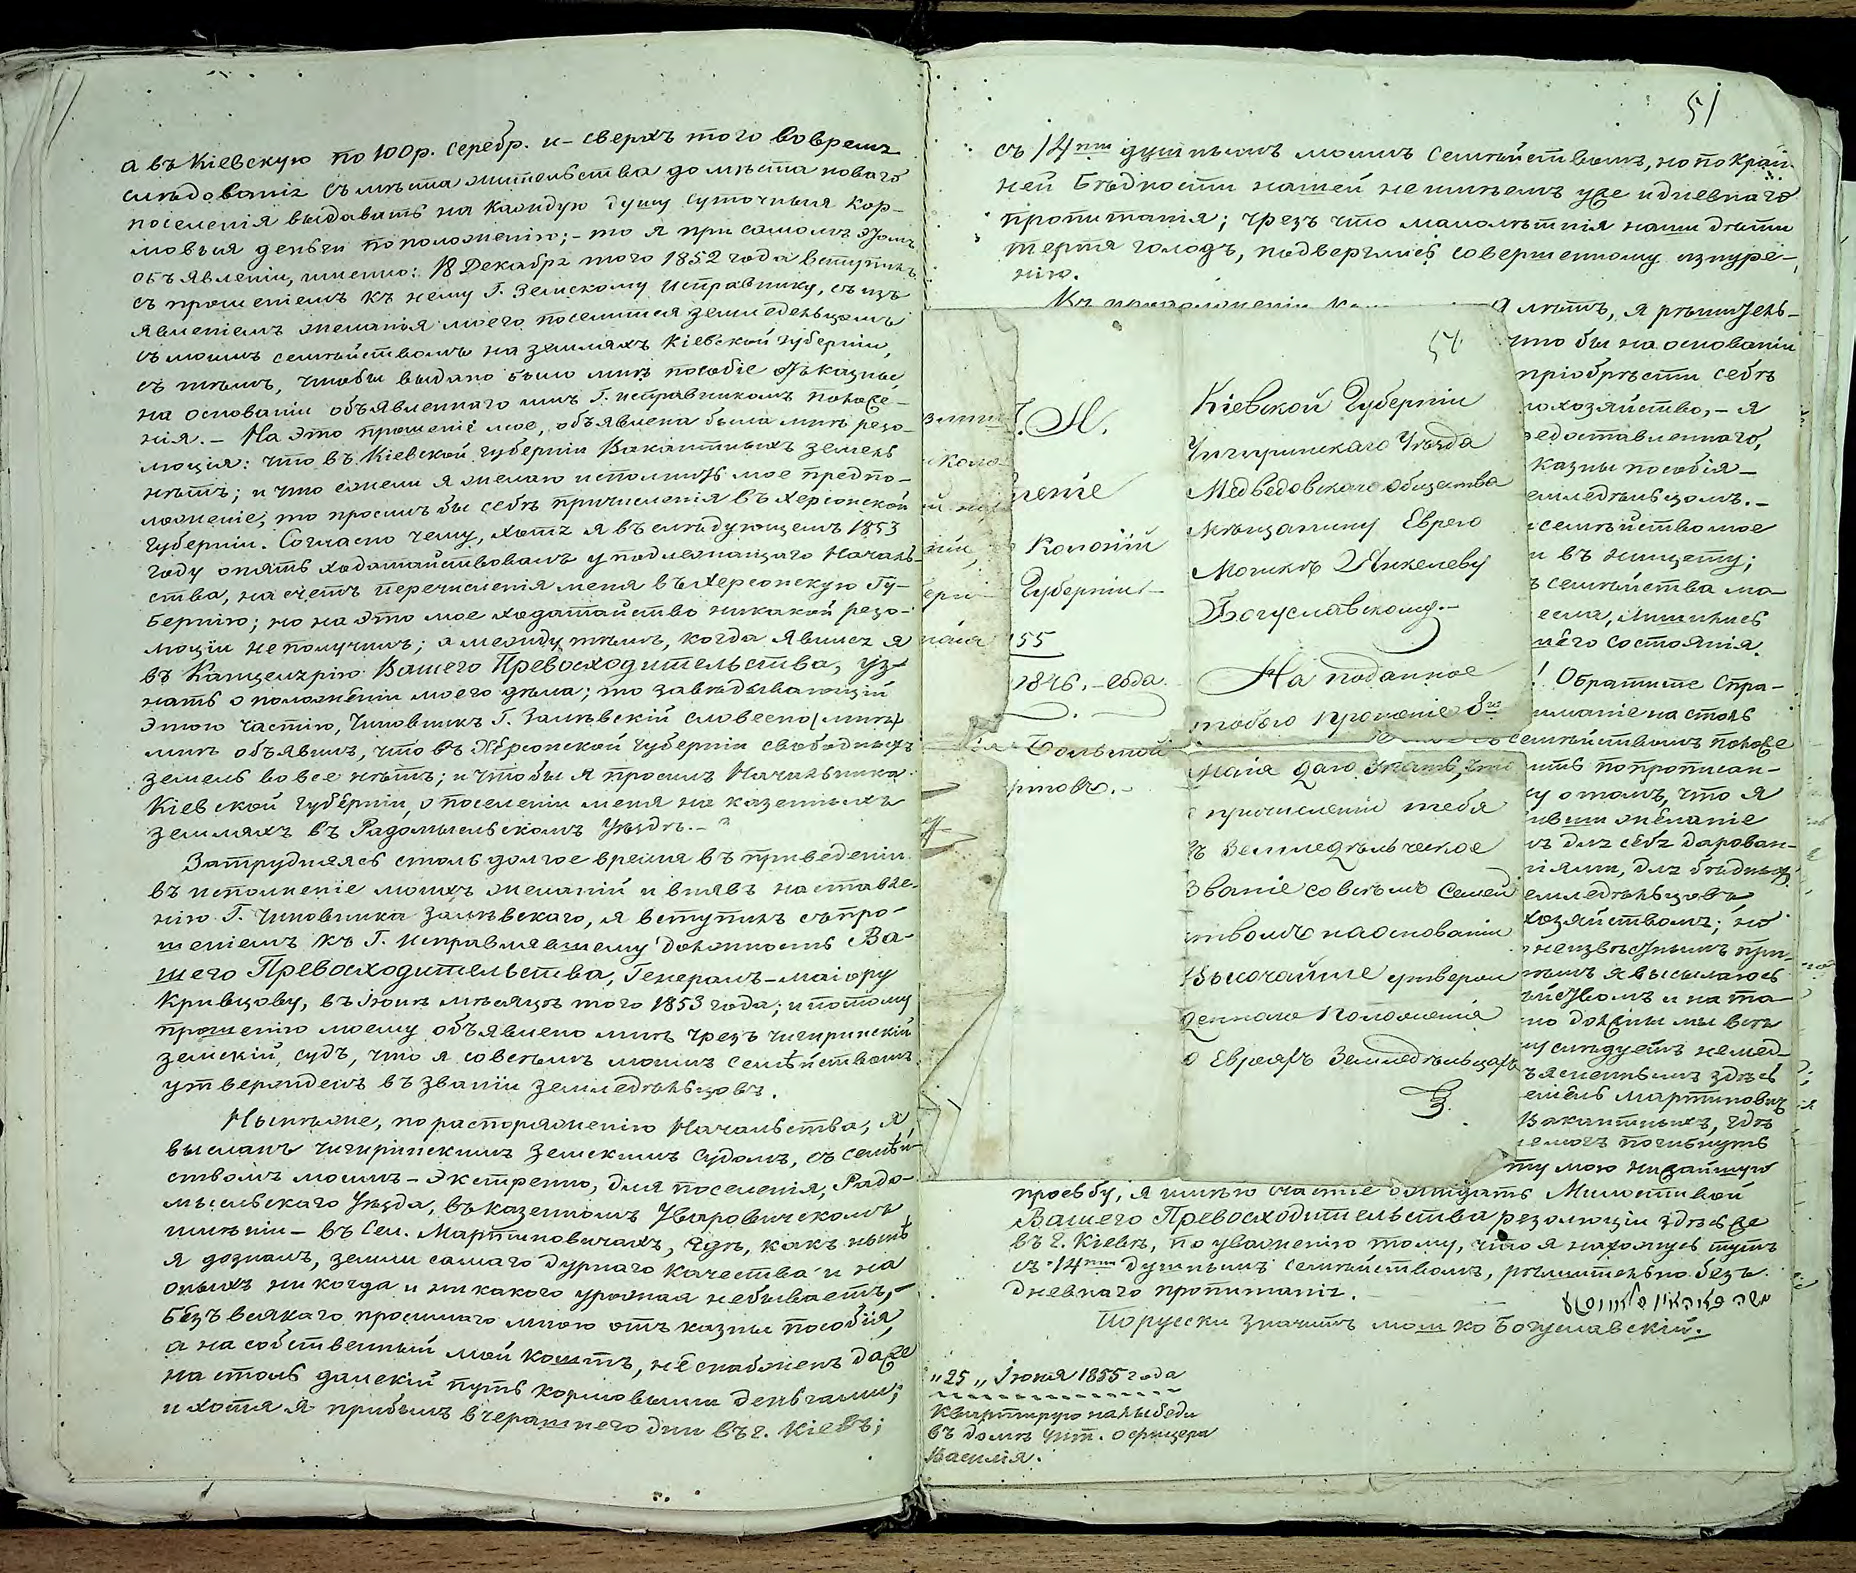 а въ Кіевскую по 100 р. серебр. и – сверхъ того вовремя
слѣдованія съ мѣста жительства до мѣста новаго
поселенія выдавать на каждую душу суточныя кор-
мовыя деньги по положенію; – то я при самомъ этомъ
объявленіи, именно: 18 Декабря того 1852 года вступилъ
съ прошеніемъ къ нему Г. Земскому Исправнику, съ изъ
явленіемъ желанья моего поселится земледѣльцомъ
съ моимъ семѣйствомъ на земляхъ Кіевской губерніи,
съ тѣмъ, чтобы выдано было мнѣ пособіе отъ казны,
на основаніи объявленнаго мнѣ Г. Исправникомъ положе-
нія. – На это прошеніе мое, объявлена была мнѣ резо-
люція: что въ Кіевской губерніи вакантныхъ земель
нѣтъ; и что ежели я желаю исполнить мое предпо-
ложеніе, то просилъ бы себѣ причисленія въ Херсонской
губерніи. Согласно чему, хотя я въ слѣдующемъ 1853
году опять ходатайствовалъ у подлежащаго Началь-
ства, на счетъ перечисленія меня въ Херсонскую Гу-
бернію; но на это мое ходатайство никакой резо-
люціи не получилъ; а между тѣмъ, когда явился я
въ Канцелярію Вашего Превосходительства, уз-
нать о положеніи моего дѣла; то завѣдывающій
этою частію, Чиновникъ Г. Залѣвскій словесно
мнѣ объявилъ, что въ Херсонской губерніи свободныхъ
земель вовсе нѣтъ; и чтобы я просилъ Начальника
Кіевской губерніи, о поселеніи меня на казенныхъ
земляхъ въ Радомысльскомъ Уѣздѣ. –
Затрудняясь столь долгое время въ приведеніи
въ исполненіе моихъ желаній и внявъ наставле-
нію Г. Чиновника Залѣвскаго, я вступилъ съ про-
шеніемъ къ Г. Исправлявшему должность Ва-
шего Превосходительства, Генералъ-маіору
Кривцову, въ Іюнѣ мѣсяцѣ того 1853 года; и потому
прошенію моему объявлено мнѣ чрезъ чигиринскій
земскій судъ, что я совсѣмъ моимъ семѣйствомъ
утвержденъ въ званіи земледѣльцовъ.
Нынѣже, по распоряженію Начальства, я
высланъ чигиринскимъ земскимъ судомъ, съ семѣй-
ствомъ моимъ – экстренно, для поселенія, Радо-
мысльскаго Уѣзда, въ казенномъ Уваровическомъ
имѣніи – въ Сел. Мартиновичахъ, гдѣ, какъ нынѣ
я дозналъ, земли самаго дурнаго качества и на
оныхъ никогда и никакого урожая небываетъ, –
безъ всякаго просимаго мною отъ казны пособія,
а на собственный мой коштъ, не снабженъ даже
на столь далекій путь кормовыми деньгами;
и хотя я прибылъ вчерашнего дни въ г. Кіевъ;
51
съ 14ти душнымъ моимъ семѣйствомъ, но по край-
ней бѣдности нашей не имѣемъ уже и дневнаго
пропитанія; чрезъ что малолѣтнія наши дѣти
терпя голодъ, подверглись совершенному изнуре-
нію.
лѣтъ, я рѣшитель-
что бы на основаніи
пріобрѣсти себѣ
хозяйство, – я
едоставленнаго,
казны пособія –
емледѣльцомъ. –
семѣйство мое
и въ нищету;
семѣйства мо-
есла, лишились
него состоянія.
! Обратите стра-
иманіе на столь
семѣйствомъ поло
ить по прописан-
у о томъ, что я
ившій желаніе
для себя дарован-
ніями, для бѣдныхъ
емледѣльцовъ
хозяйствомъ; но
неизвѣстнымъ при-
я высылаюсь
ствомъ и на та-
но должны мы всѣ
слѣдуетъ немед-
ъясненнымъ здѣсь
селѣ Мартинович
Вакантныхъ, гдѣ
емогъ погибнуть
ту мою нижайшую
просьбу, я имѣю счастіе ожидать Милостивой
Вашего Превосходительства резолюціи здѣсь же
въ г. Кіевѣ, по уваженію тому, что я нахожусь тутъ
съ 14ти душнымъ семѣйствомъ, рѣшительно безъ
дневнаго пропитанія.
По русски значитъ Мошко Богуславскій.
„25„ Іюня 1855 года
Квартирую на Лыбеди
въ домѣ Унт. офицера
Василія.
54
Кіевской Губерніи
Чигиринскаго Уѣзда
Медведовскаго Общества
Мѣщанину Еврею
Мошкѣ Янкелеву
Богуславскому. –
На поданное
тобою прошеніе 8го
Маія даю знать, что
о причисленіи тебя
въ Земледѣльческое
званіе со всѣмъ семей
ствомъ на основаніи
Высочайше утверж
деннаго Положенія
о Евреяхъ Земледѣльцахъ
М. Н.
Колоніи
Губерніи –
55
1846. – года
Большой